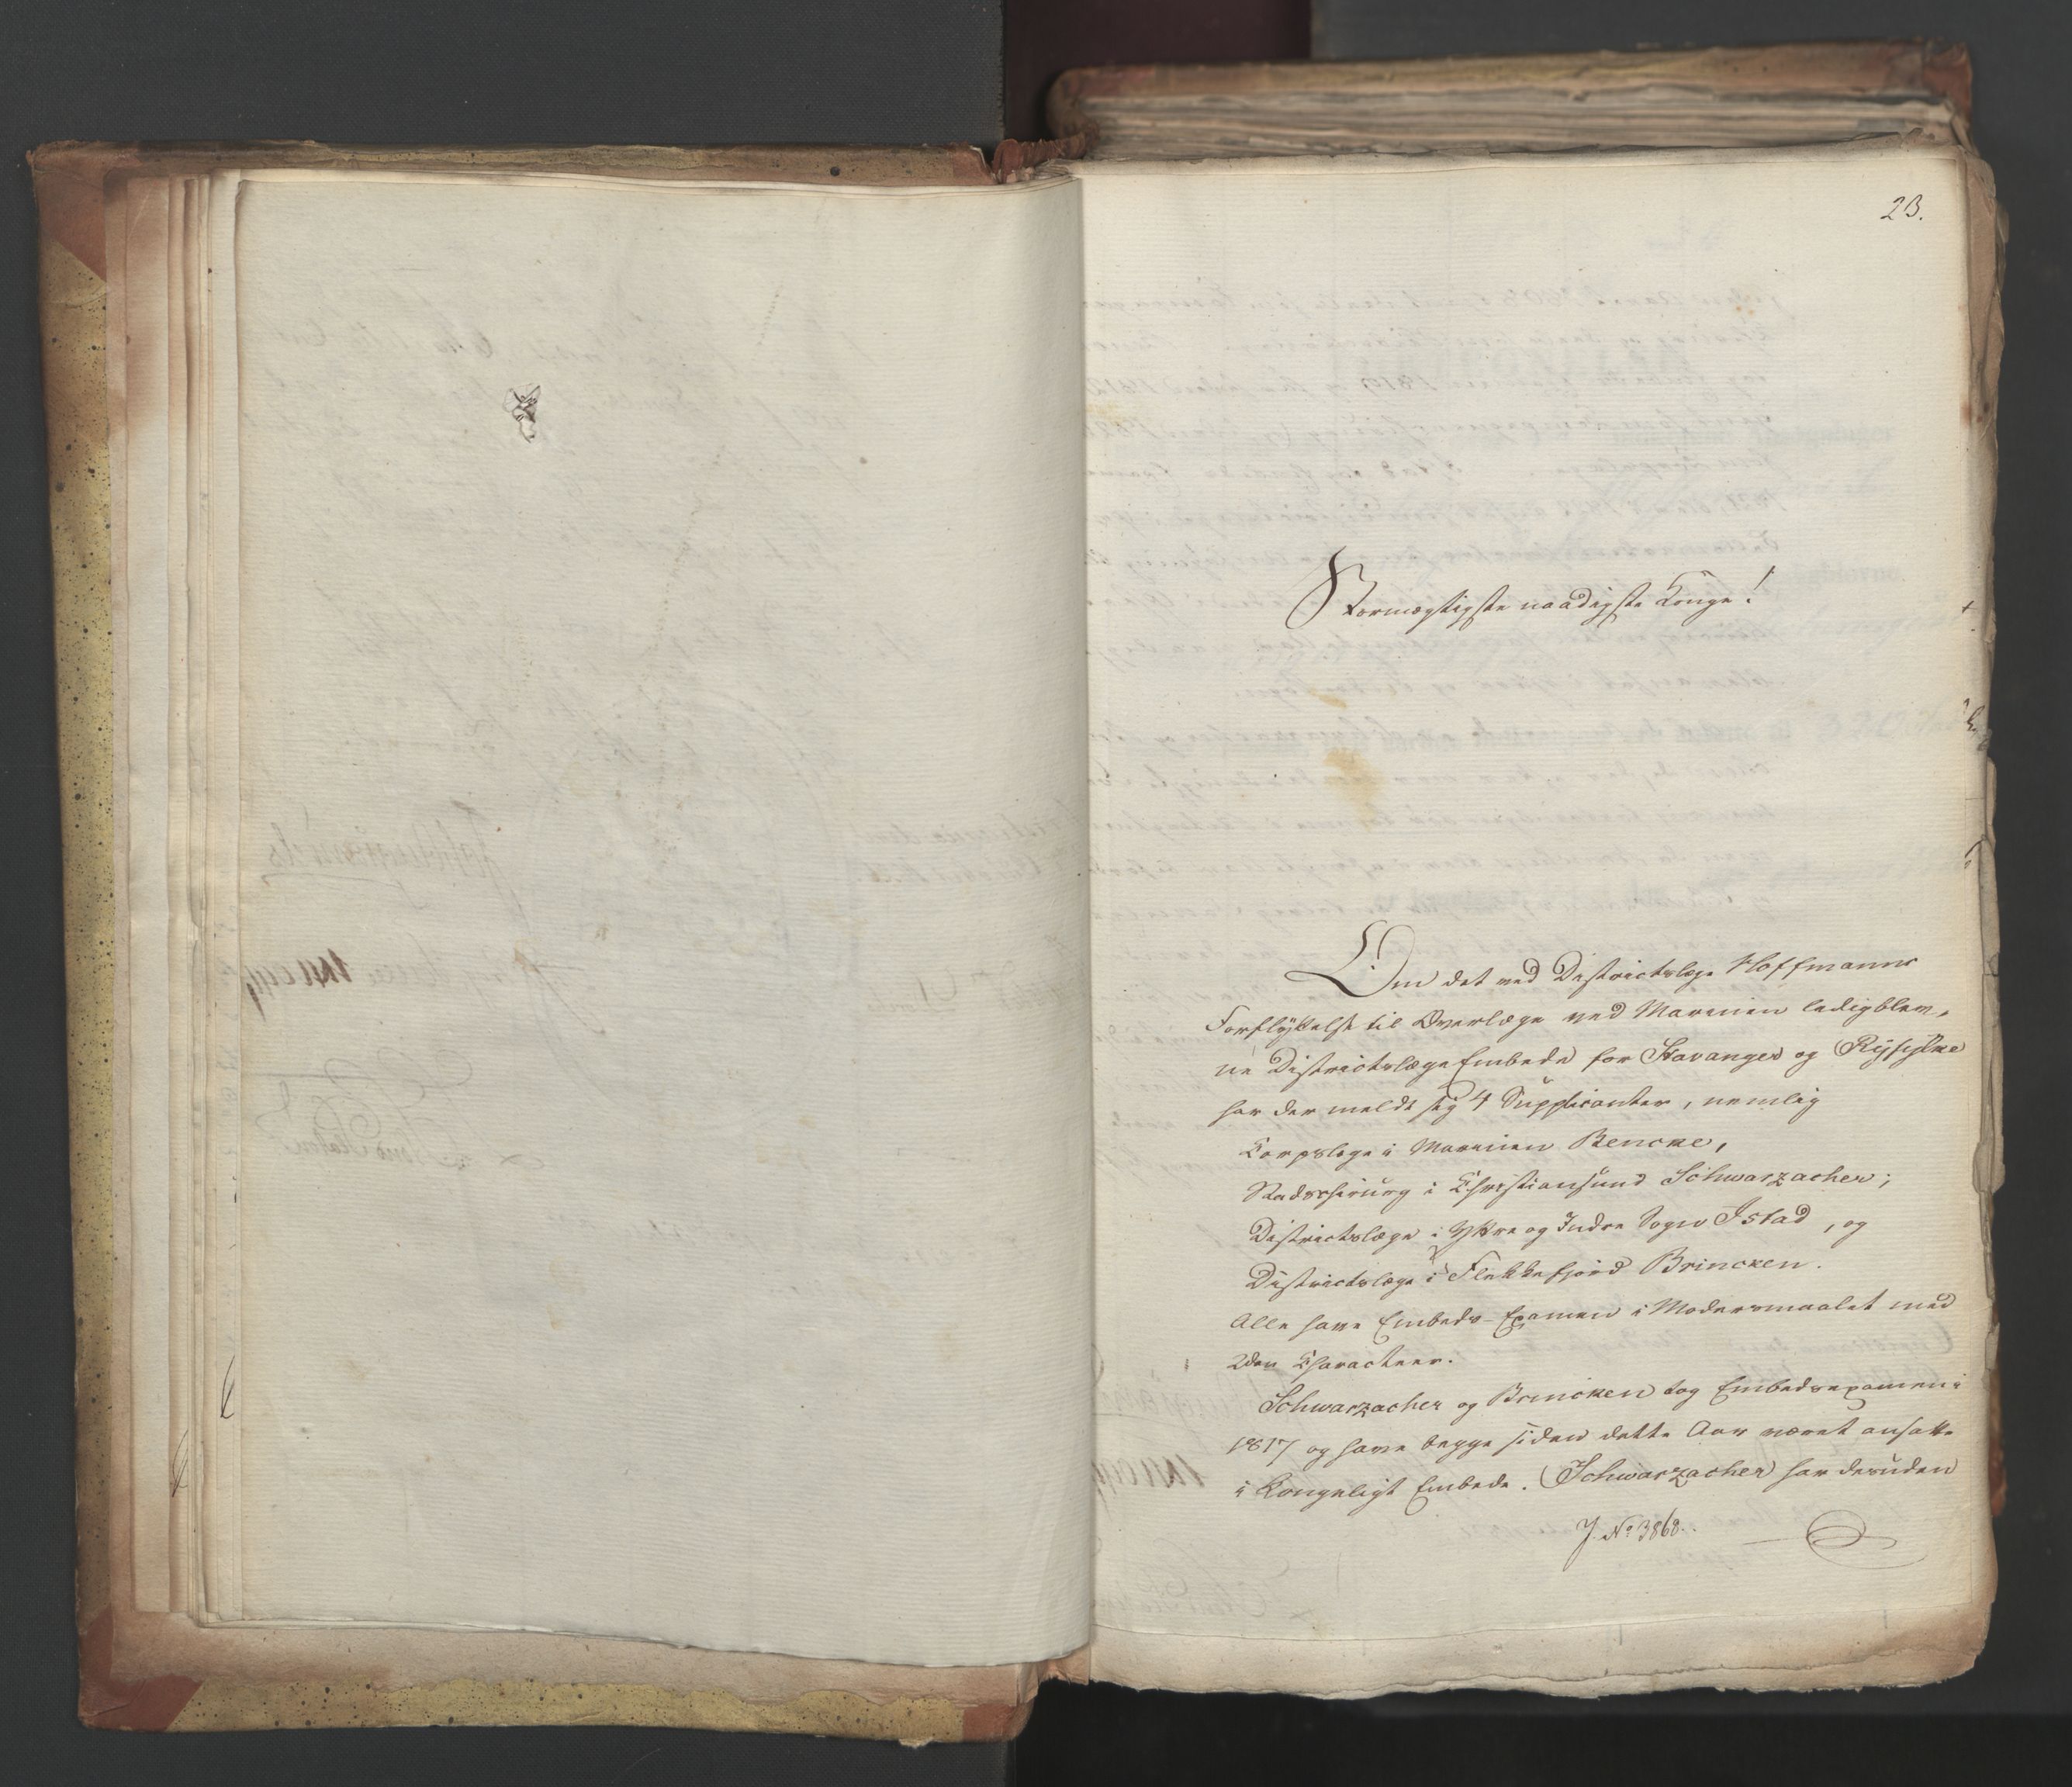 23.
Stormægtigste naadigste Konge!
Om det ved Districtslæge Hoffmanns
Forflÿttelse til Overlæge ved Marinen ledigblev,
ne DistrictslægeEmbede for Stavanger og Rÿfÿlke
har der meldt sig 4 Supplicanter, nemlig
Corpslæge i Marinen Bencke,
Stadschirurg i Christiansund Schwarzacher;
Districtslæge i Ÿttre og Indre Sogn Istad, og
Districtslæge i Flekkefjord Brincken.
Alle have Embeds-Examen i Modersmaalet med
2den Characteer.
Schwarzacher og Brincken tog Embedsexamen i
1817 og have begge siden dette Aar været ansatte
i Kongeligt Embede. Schwarzacher har desuden
J. No 3868.